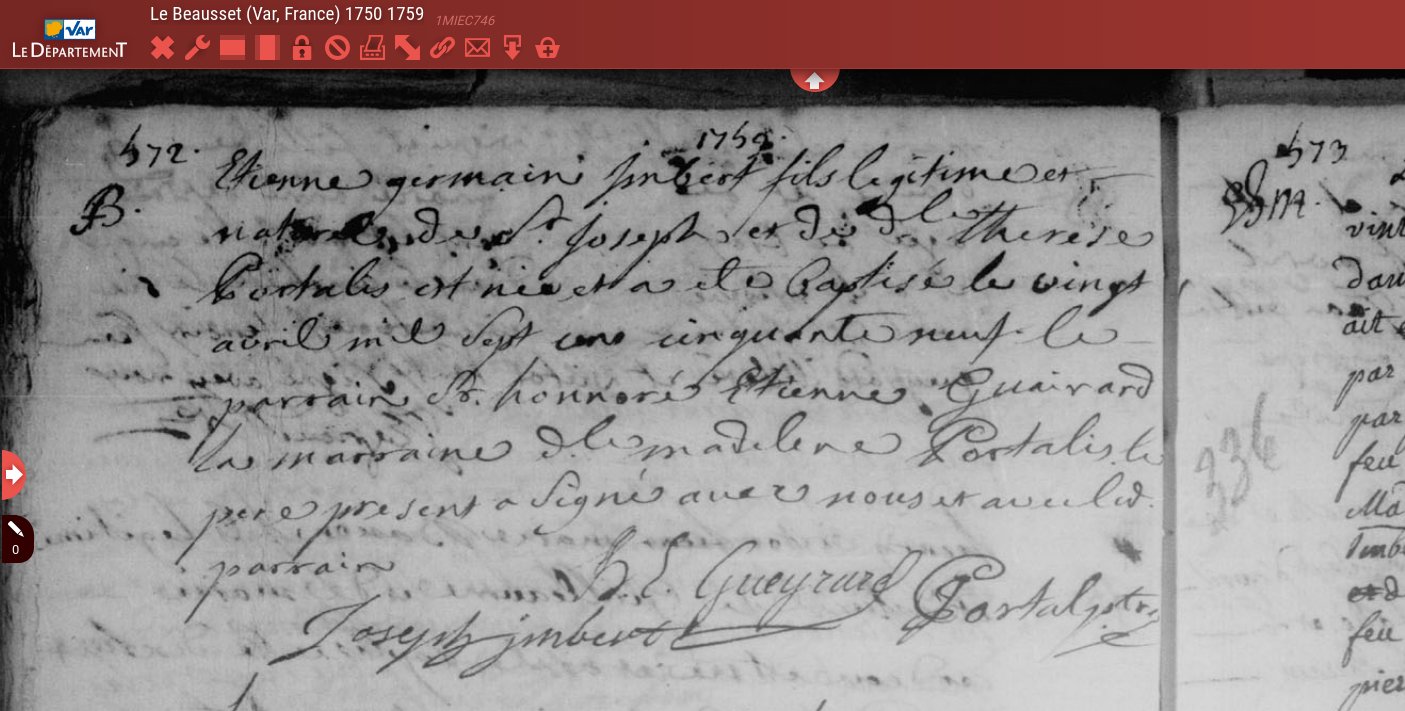 Le Beausset (Var, France) 1750 1759
1MIEC746
VAR
LE DÉPARTEMENT
0
572.
1759.
B.
Etienne germain jmbert fils legitime et
naturel de Sr. joseph et de dlle therese
Portalis est née et a ete Baptisé le vingt
avril mil sept cens cinquante neuf. le
parrain Sr. honnoré Etienne Guairard
la marraine dlle madelene Portalis. le
pere present a signé avec nous et avec led.
parrain
h. E. Gueyrard
Portaly ptre
Joseph jmbert
573
M.
vint
dan
ait
par
par
feu
Ma
feu
pier
336